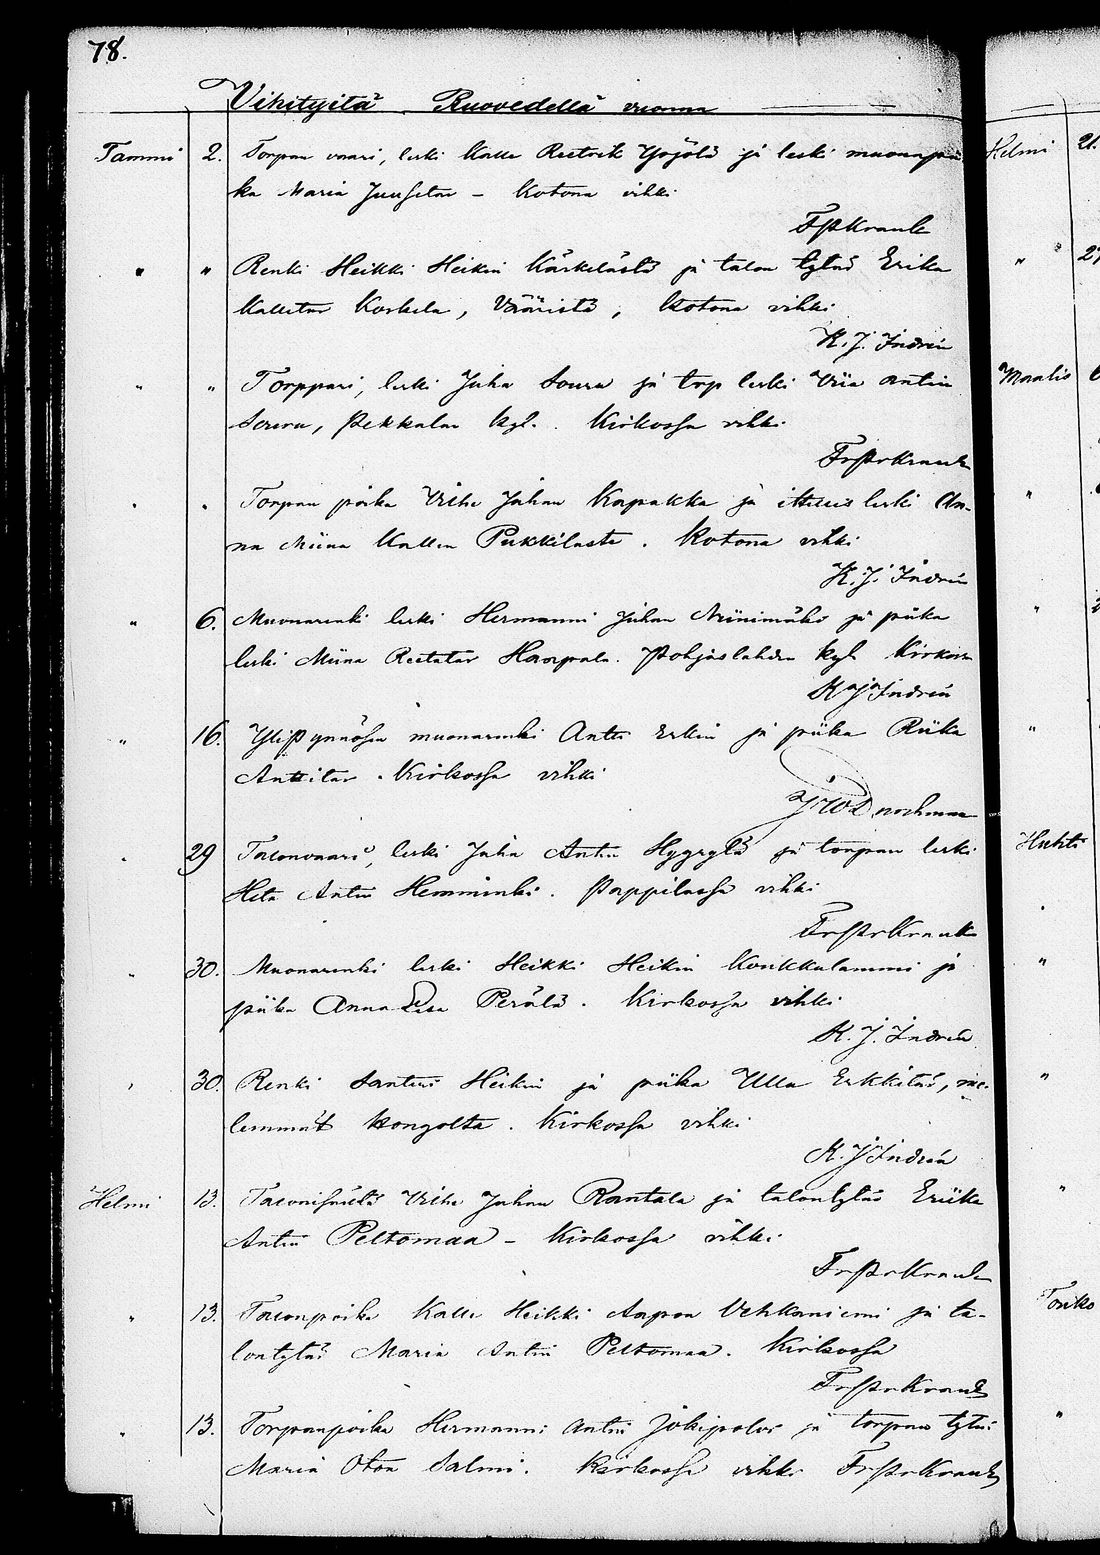 78.
Vihityitä Ruovedellä vuonna
Tammi 2. Torpan vaari, leski Kalle Reetrik Yöjölä ja leski muonapii
ka Maria Juuhetar – Kotona vihki
FPKrank
" " Renki Heikki Heikin Kärkelästä ja talon tytär Erika
Kalletar Korkela, Vääristä, Kotona vihki
K. J. Indrén
" " Torppari, leski Juha Souru ja torp leski Viia Antin
Souru, Pekkalan kyl. Kirkossa vihki
FrPrKrank
" " Torpan poika Vihe Juhan Kapakka ja leski An-
na Miina Kallen Pukkilasta. Kotona vihki
K. J. Indrén
" 6. Muonarenki leski Hermanni Juhan Niinimäki ja piika
leski Miina Reetatar Haapala. Pohjaslahden kyl Kirkossa
K J Indrén
" 16. Ylipynnösen muonarenki Antti Erkin ja piika Riika
Antitar. Kirkossa vihki
" 29 Talonvaari, leski Juha Antin Hyyrylä ja torpan leski
Heta Antin Hemminki. Pappilassa vihki
FrPrKrank
" 30. Muonarenki leski Heikki Heikin Koukkulammi ja
piika Anna Lisa Perälä. Kirkossa vihki
K. J. Indrén
" 30. Renki Santeri Heikin ja piika Ulla Erkkitar, mo-
lemmat Kongolta. Kirkossa vihki
K. J Indrén
Helmi 13. Vihe Juhan Rantala ja talontytär Eriika
Antin Peltomaa – Kirkossa vihki
FrPrKrank
" 13. Talonpoika Kalle Heikki Aapon Vehkaniemi ja ta-
lontytär Maria Antin Peltomaa. Kirkossa
FrPrKrank
" 13. Torpanpoika Hermanni Antin Jokipolvi ja torpan tytär
Maria Oton Salmi. Kirkossa vihki FrPrKrank
Helmi 21.
" 27
Maalis
"
"
"
Huhti
"
"
"
Touko
"